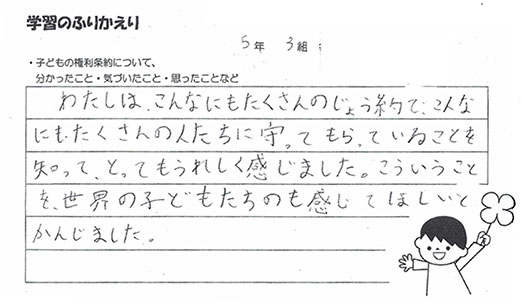 学習のふりかえり
5年 3組
・子どもの権利条約について、
分かったこと・気づいたこと・思ったことなど
わたしは、こんなにもたくさんのじょう約で、こんな
にもたくさんの人たちに守ってもらっていることを
知って、とってもうれしく感じました。こういうこと
を、世界の子どもたちのも感じてほしいと
かんじました。